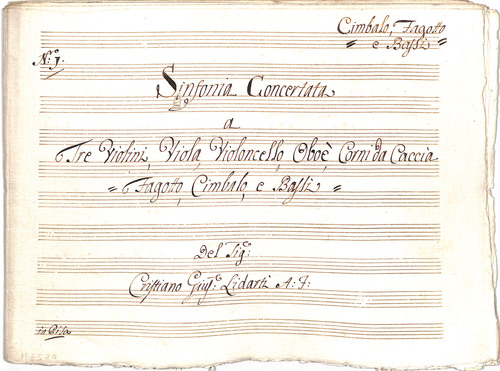 Cimbalo, Fagotto
= e Bassi =
N:º 1.
Sinfonia Concertata
a
Tre Violini, Viola, Violoncello, Oboè, Corni da Caccia
= Fagotto, Cimbalo, e Bassi =
Del Sig:º
Cristiano Gius:º Lidarti A: F:
in Pisa